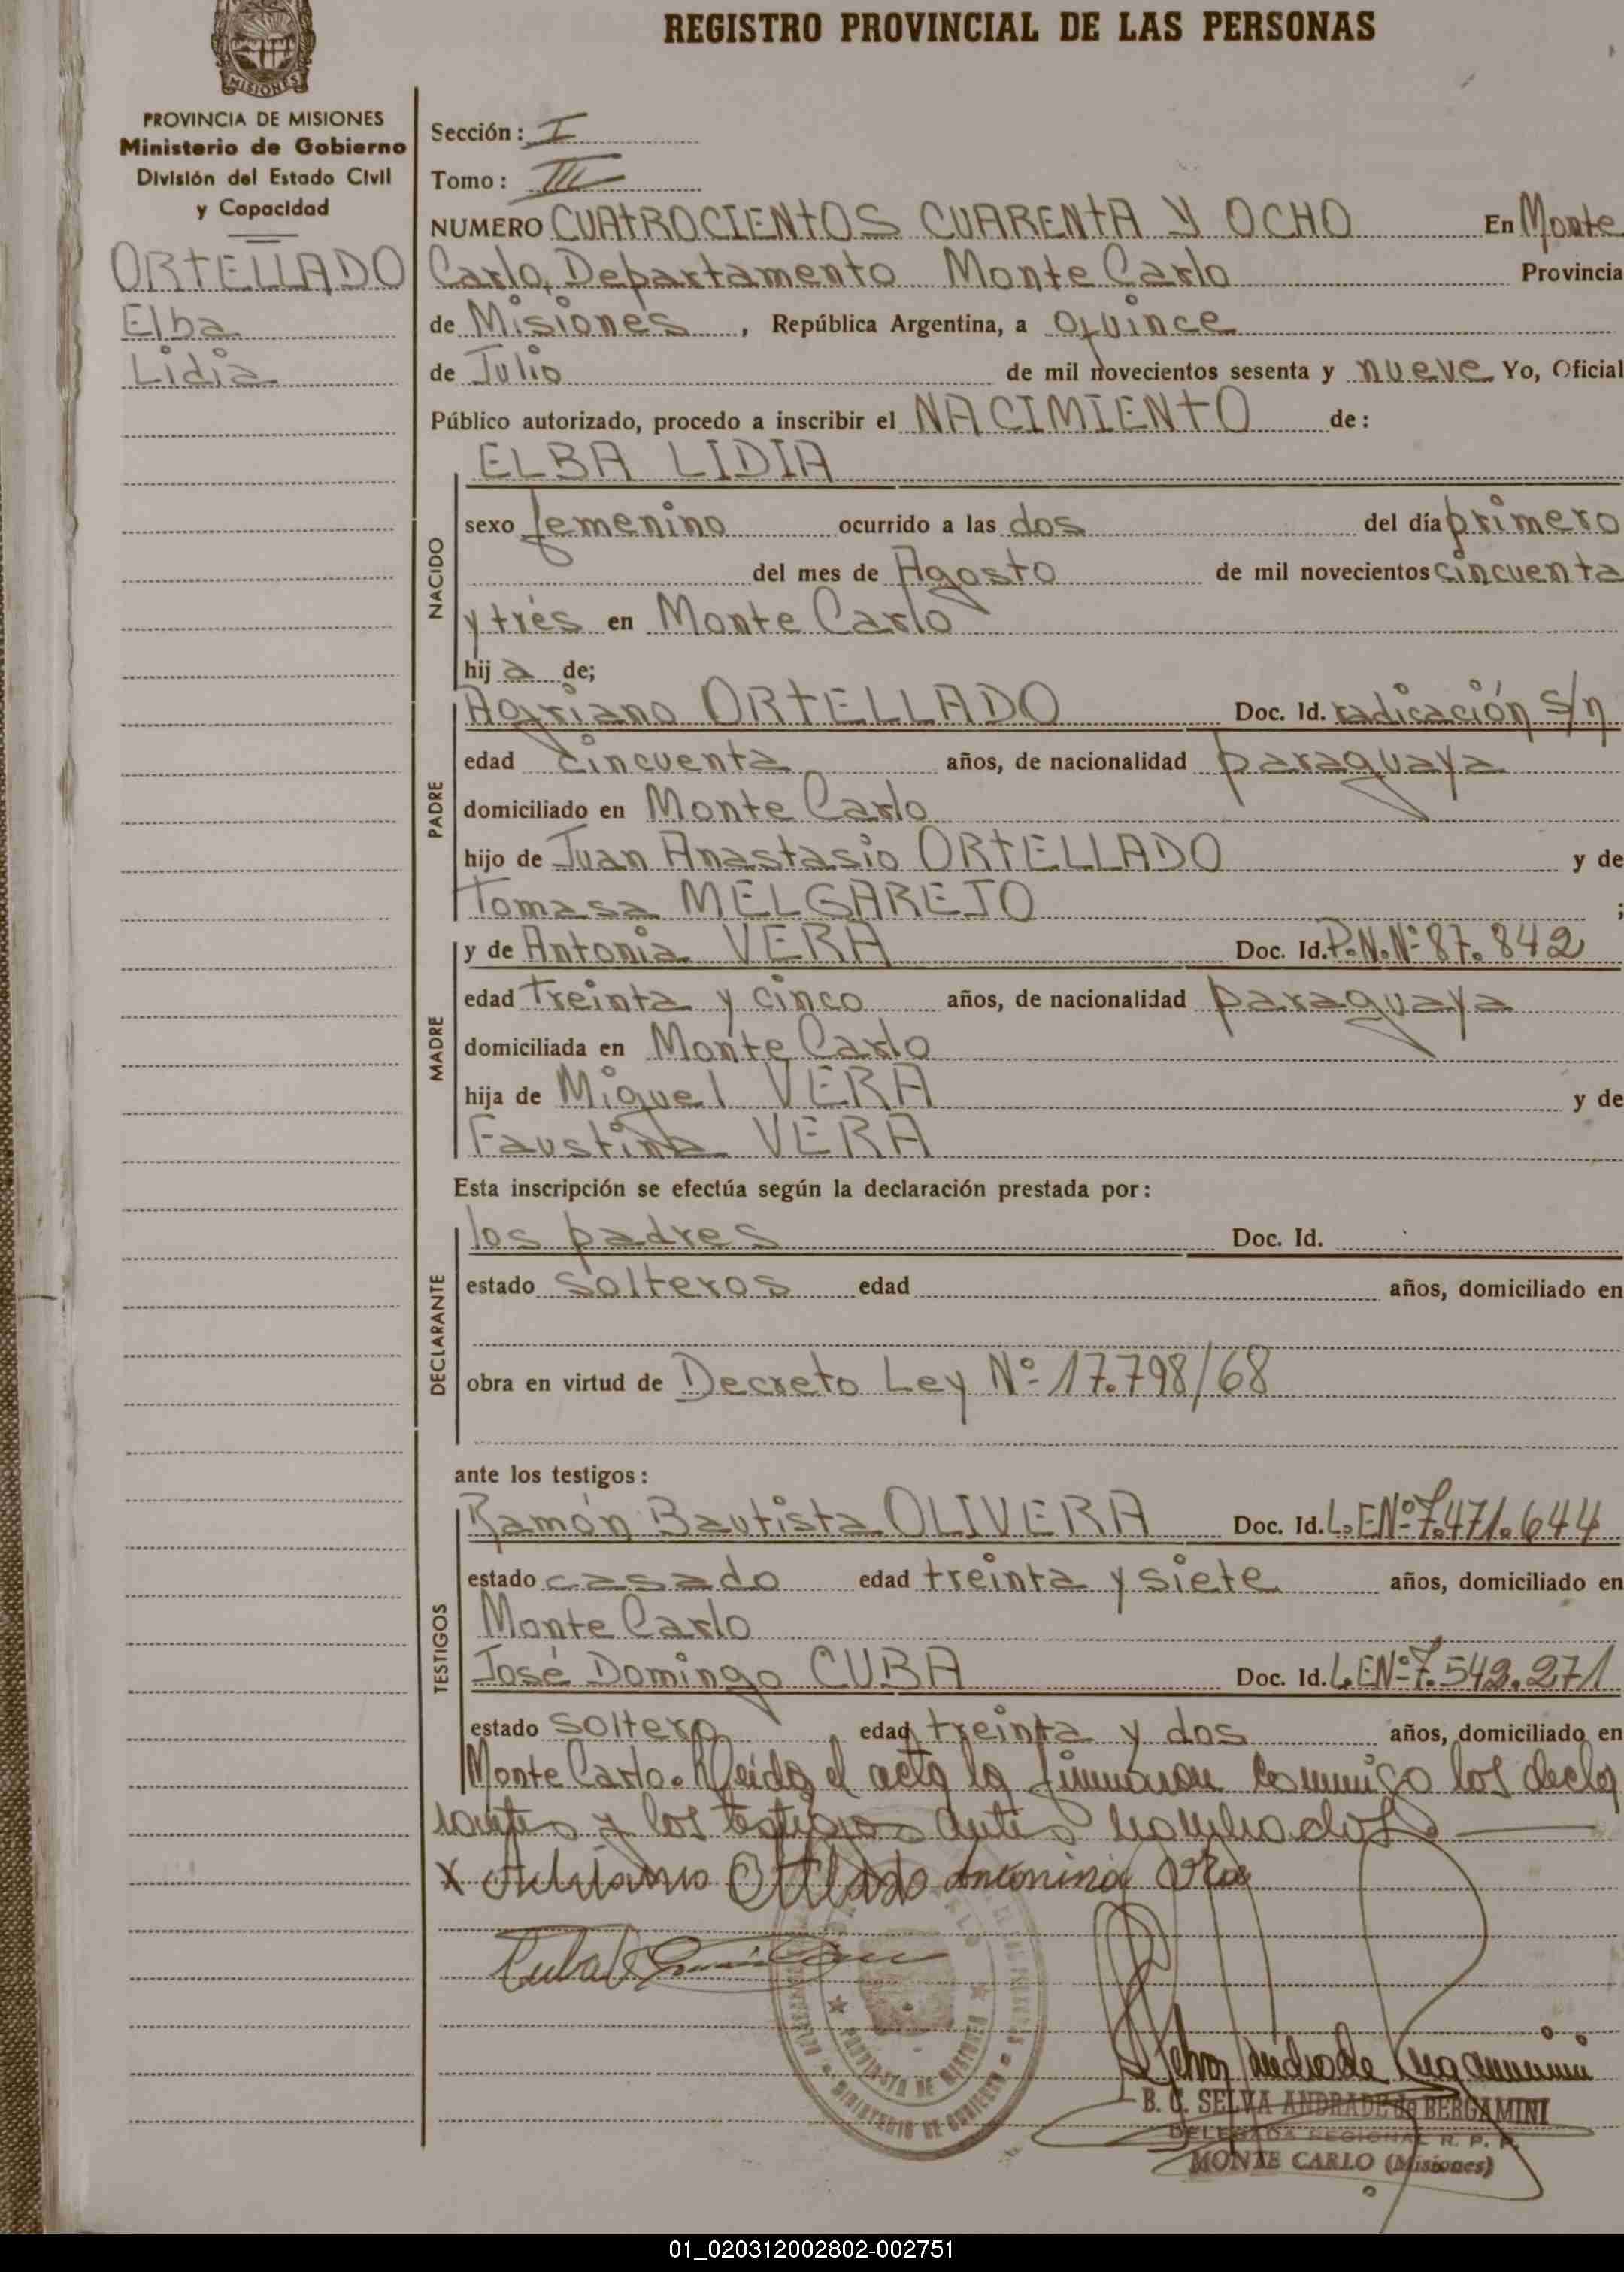 REGISTRO PROVINCIAL DE LAS PERSONAS
MISIONES
PROVINCIA DE MISIONES
Ministerio de Gobierno
División del Estado Civil
y Capacidad
ORTELLADO
Elba
Lidia
Sección: I
Tomo: III
NUMERO CUATROCIENTOS CUARENTA Y OCHO En Monte
Carlo, Departamento Monte Carlo Provincia
de Misiones, República Argentina, a Quince
de Julio de mil novecientos sesenta y nueve Yo, Oficial
Público autorizado, procedo a inscribir el NACIMIENTO de:
ELBA LIDIA
NACIDO
sexo femenino ocurrido a las dos del día primero
del mes de Agosto de mil novecientos cincuenta
y tres en Monte Carlo
hij a de;
PADRE
Adriano ORTELLADO Doc. Id. radicación s/n
edad cincuenta años, de nacionalidad paraguaya
domiciliado en Monte Carlo
hijo de Juan Anastasio ORTELLADO y de
Tomasa MELGAREJO ;
MADRE
y de Antonia VERA Doc. Id. P.N.Nº 87.842
edad treinta y cinco años, de nacionalidad paraguaya
domiciliada en Monte Carlo
hija de Miguel VERA y de
Faustina VERA
Esta inscripción se efectúa según la declaración prestada por:
DECLARANTE
los padres Doc. Id.
estado solteros edad años, domiciliado en
obra en virtud de Decreto Ley Nº 17.798/68
ante los testigos:
TESTIGOS
Ramón Bautista OLIVERA Doc. Id. L.E Nº 7.471.644
estado casado edad treinta y siete años, domiciliado en
Monte Carlo
José Domingo CUBA Doc. Id. L.E Nº 7.542.271
estado soltero edad treinta y dos años, domiciliado en
Monte Carlo. Leida el acta la firmaron conmigo los decla
rantes y los testigos antes nombrados
x Adriano Ortellado Antonina Vera
Cuba
PROVINCIA DE MISIONES
MINISTERIO DE GOBIERNO
Selva Andrade Bergamini
B. C. SELVA ANDRADE de BERGAMINI
DELEGADA REGIONAL R. P. P.
MONTE CARLO (Misiones)
01_020312002802-002751